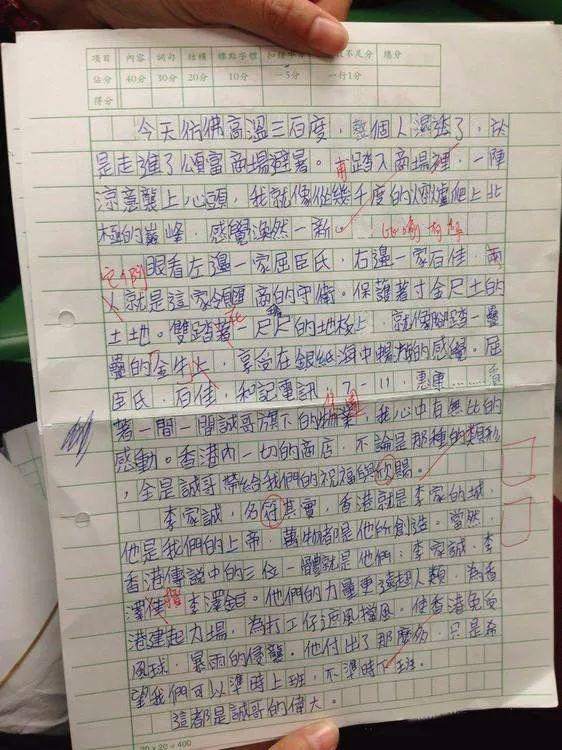 項目 內容 詞句 結構 標點字體 總分
佔分 40分 30分 20分 10分 -5分 一行1分
得分
今天彷彿高溫三百度，整個人濕透了，於
是走進了頌富商場避暑。甫踏入商場裡，一陣
涼意襲上心頭，我就像從幾千度的火爐爬上北
極的巔峰，感覺渙然一新。
眼看左邊一家屈臣氏，右邊一家百佳，兩
人就是這家領匯商的守衛。保護著寸金尺土的
土地。雙踏著一尺尺的地板上，就像腳踏一疊
疊的金牛上，享受在銀紙海中暢游的感覺。屈
臣氏，百佳，和記電訊，7-11，惠康……看
著一間一間誠哥旗下的物業，我心中有無比的
感動。香港內一切的商店，不論是那種的類行
，全是誠哥帶給我們的祝福與欣賜。
李家誠，名符其實，香港就是李家的城，
他是我們的上帝，萬物都是他所創造。當然，
香港傳說中的三位一體就是他們：李家誠，李
澤佳，李澤鉅。他們的力量更強超人類，為香
港建起力場，為打工仔遮風擋風，使香港免受
風球，暴雨的侵襲。他付出了那麼多，只是希
望我們可以準時上班，不準時下班。
這都是誠哥的偉大。
20×20=400